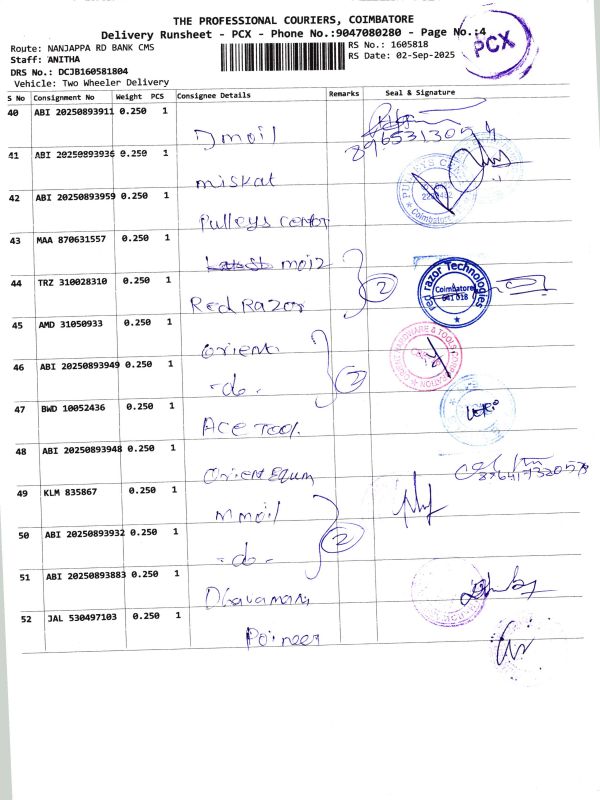 THE PROFESSIONAL COURIERS, COIMBATORE
Delivery Runsheet - PCX - Phone No.:9047080280 - Page No.:4
PCX
Route: NANJAPPA RD BANK CMS
RS No.: 1605818
Staff: ANITHA
RS Date: 02-Sep-2025
DRS No.: DCJB160581804
Vehicle: Two Wheeler Delivery
S No Consignment No Weight PCS Consignee Details Remarks Seal & Signature
40 ABI 20250893911 0.250 1 Jmoil
41 ABI 20250893936 0.250 1 miskat
42 ABI 20250893959 0.250 1 Pulleys center
Coimbatore
43 MAA 870631557 0.250 1
44 TRZ 310028310 0.250 1 Red Razor 2
red razor Technologies
Coimbatore
641 018
45 AMD 31050933 0.250 1 orient
46 ABI 20250893949 0.250 1 -do- 2
47 BWD 10052436 0.250 1 ACE Tool.
48 ABI 20250893948 0.250 1 Orient Equm
49 KLM 835867 0.250 1 mmoil
50 ABI 20250893932 0.250 1 -do- 2
51 ABI 20250893883 0.250 1 Dhavamani
52 JAL 530497103 0.250 1 Poineer